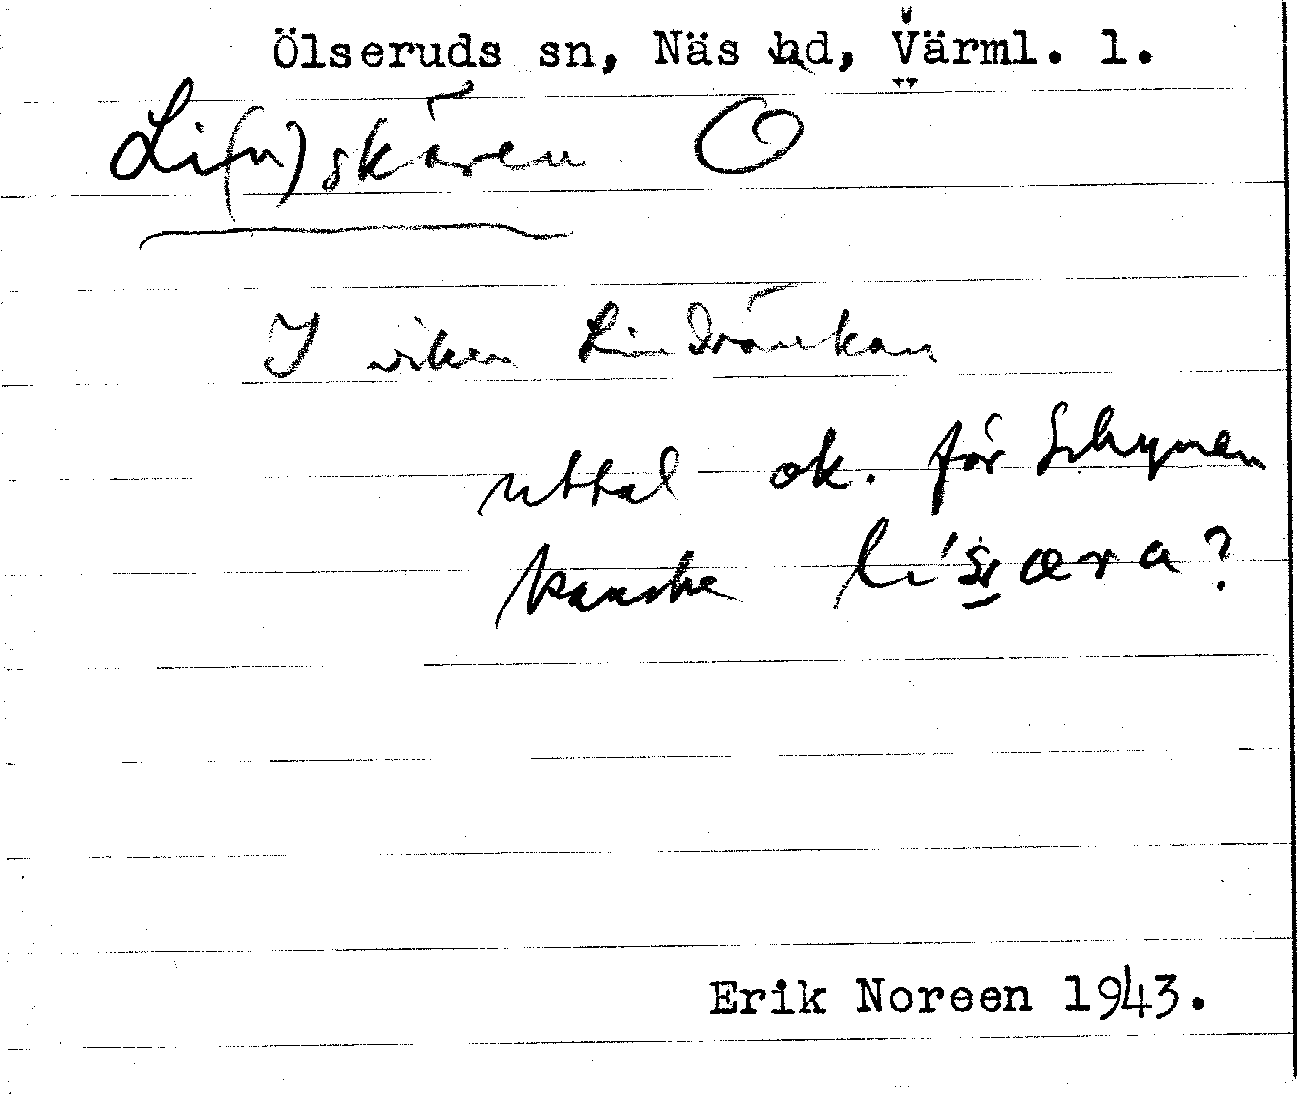 Ölseruds sn, Näs hd, Värml. l.
Li(n)skären O
I viken Lindränkan
uttal ok. för
kanske
Erik Noreen 1943.